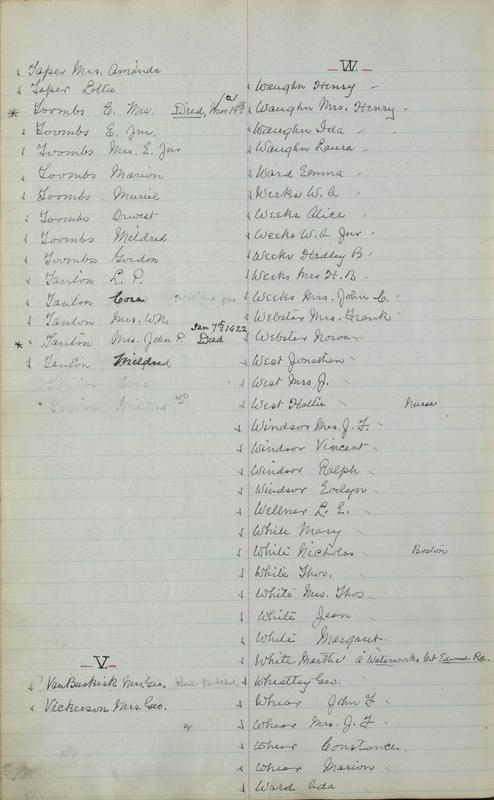 Taper Mrs. Amanda
Taper Lottie
* Toombs E. Mrs. Died, Mar 19th
Toombs E. Jnr.
Toombs Mrs. E. Jnr
Toombs Marion
Toombs Muriel
Toombs
Toombs Mildred
Toombs Gordon
Tanton L. P.
Tanton Cora
Tanton Mrs. W.N.
* Tanton Mrs. John P. Died Jan 7th 1922
Tanton Mildred
V.
VanBuskirk Mrs. Geo.
Vickerson Mrs. Geo.
W.
Waughn Henry
Waughn Mrs. Henry
Waughn Ida
Waughn Laura
Ward Emma
Weeks W. A
Weeks Alice
Weeks W. A Jnr
Weeks Hedley B
Weeks Mrs H. B.
Weeks Mrs. John C.
Webster Mrs. Frank
Webster Nora
West Jonathan
West Mrs J.
West Hattie Nurse
Windsor Mrs. J. F.
Windsor Vincent
Windsor Ralph
Windsor Evelyn
Wellner L. E.
White Mary
White Nicholas Boston
White Thos.
White Mrs. Thos
White Jean
White Margaret
White Martha Waterworks Mt Edward Rd.
Wheatley Geo.
Whear John F
Whear Mrs. J. F
Whear Constance
Whear Marion
Ward Ada